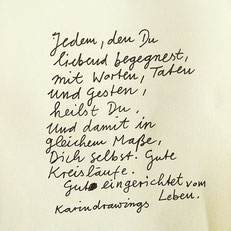 Jedem, den Du
liebend begegnest,
mit Worten, Taten
und Gesten,
heilst Du.
Und damit in
gleichem Maße,
Dich selbst. Gute
Kreisläufe.
Gut eingerichtet vom
Karindrawings Leben.